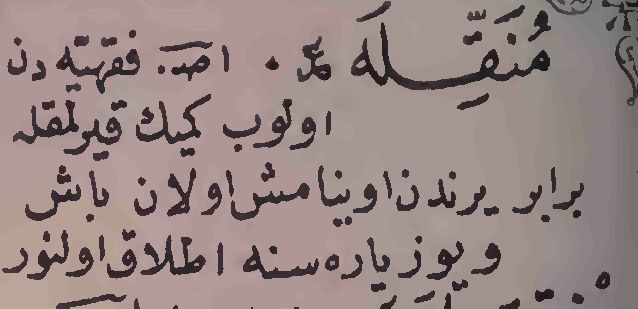 مُنَقِّلَه ٠ اصـ. فقهيّه دن
اولوب كميك قيرلمقله
برابر يرندن اوينامش اولان باش
و يوز ياره سنه اطلاق اولنور